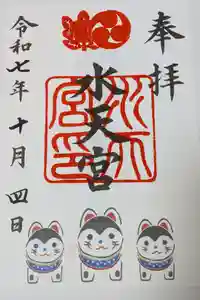 奉拝
水天宮
令和七年十月四日